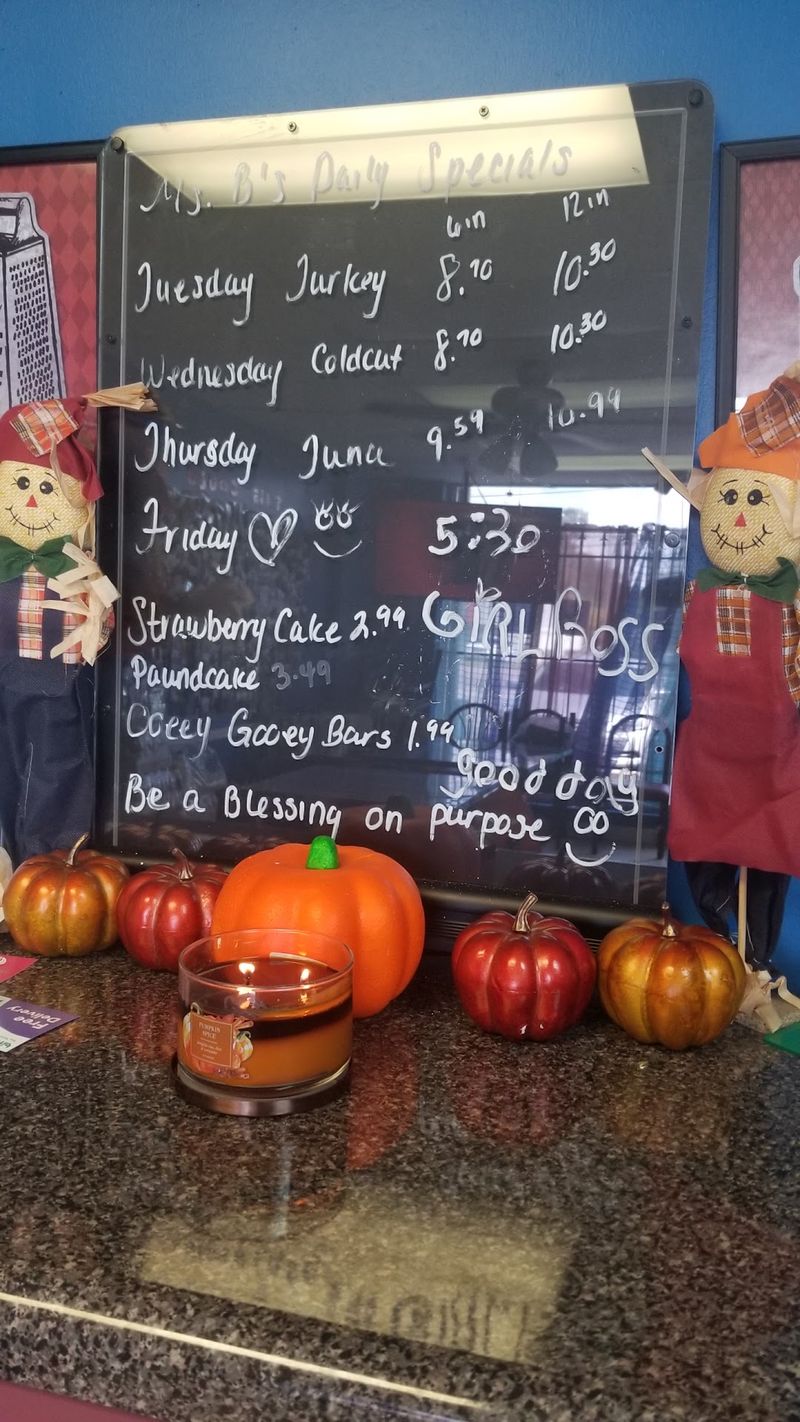 Ms. B's Daily Specials
6in 12in
Tuesday Turkey 8.70 10.30
Wednesday Coldcut 8.70 10.30
Thursday Tuna 9.59 10.99
Friday 5:30
Strawberry Cake 2.99 GIRL BOSS
Paundcake 3.49
Ooeey Gooey Bars 1.99
Good day
Be a Blessing on purpose
PUMPKIN
SPICE
Free
Delivery